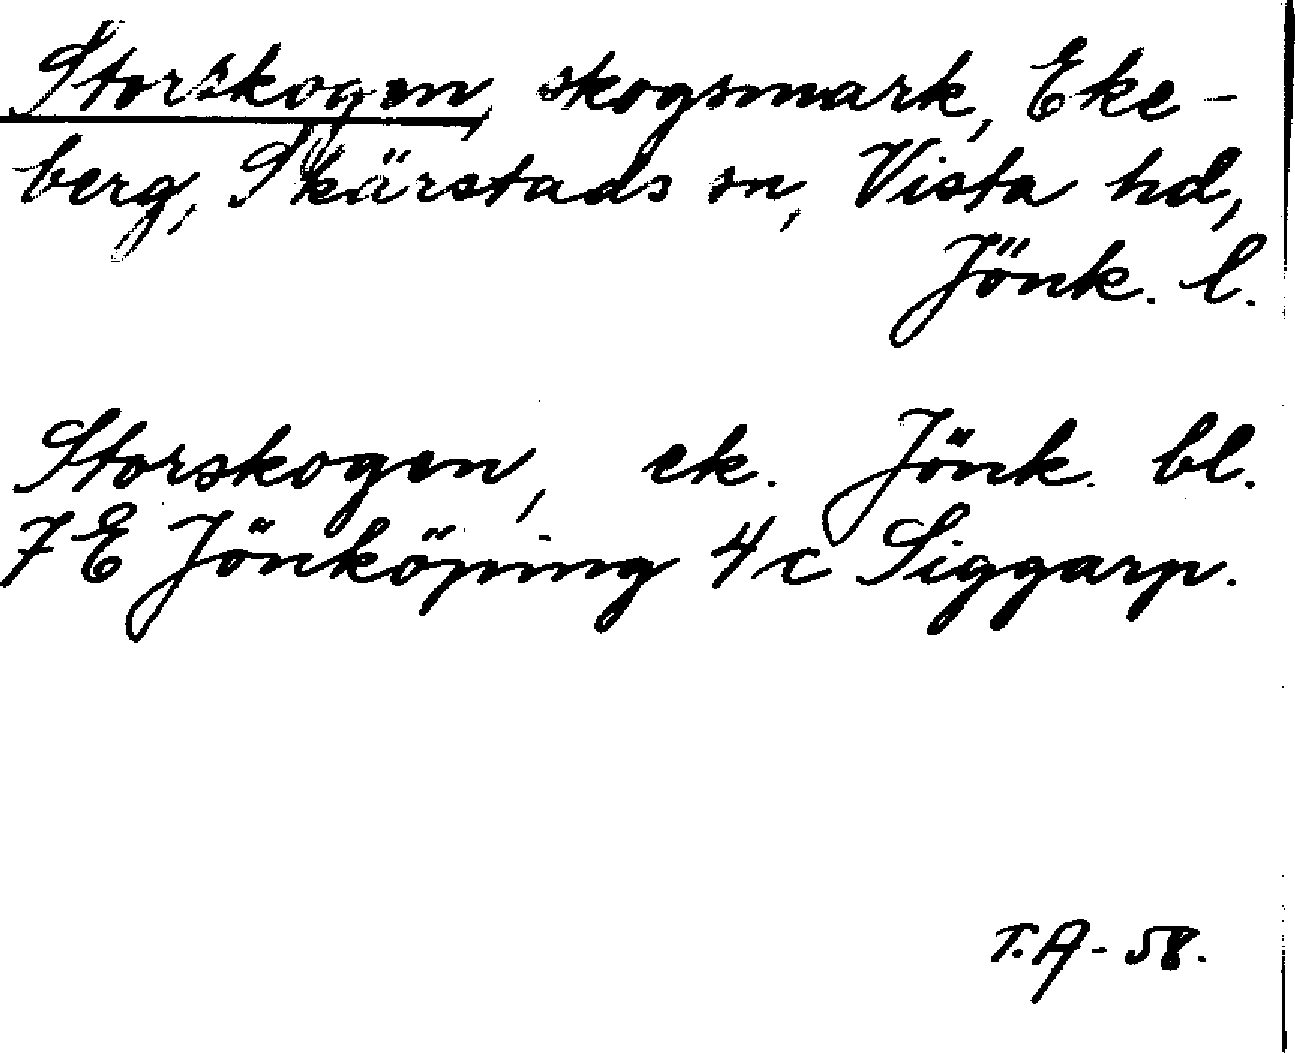 Storskogen, skogsmark, Eke-
berg, Skärstads sn, Vista hd,
Jönk. l.
Storskogen, ek. Jönk. bl.
7E Jönköping 4c Siggarp.
T.A-58.